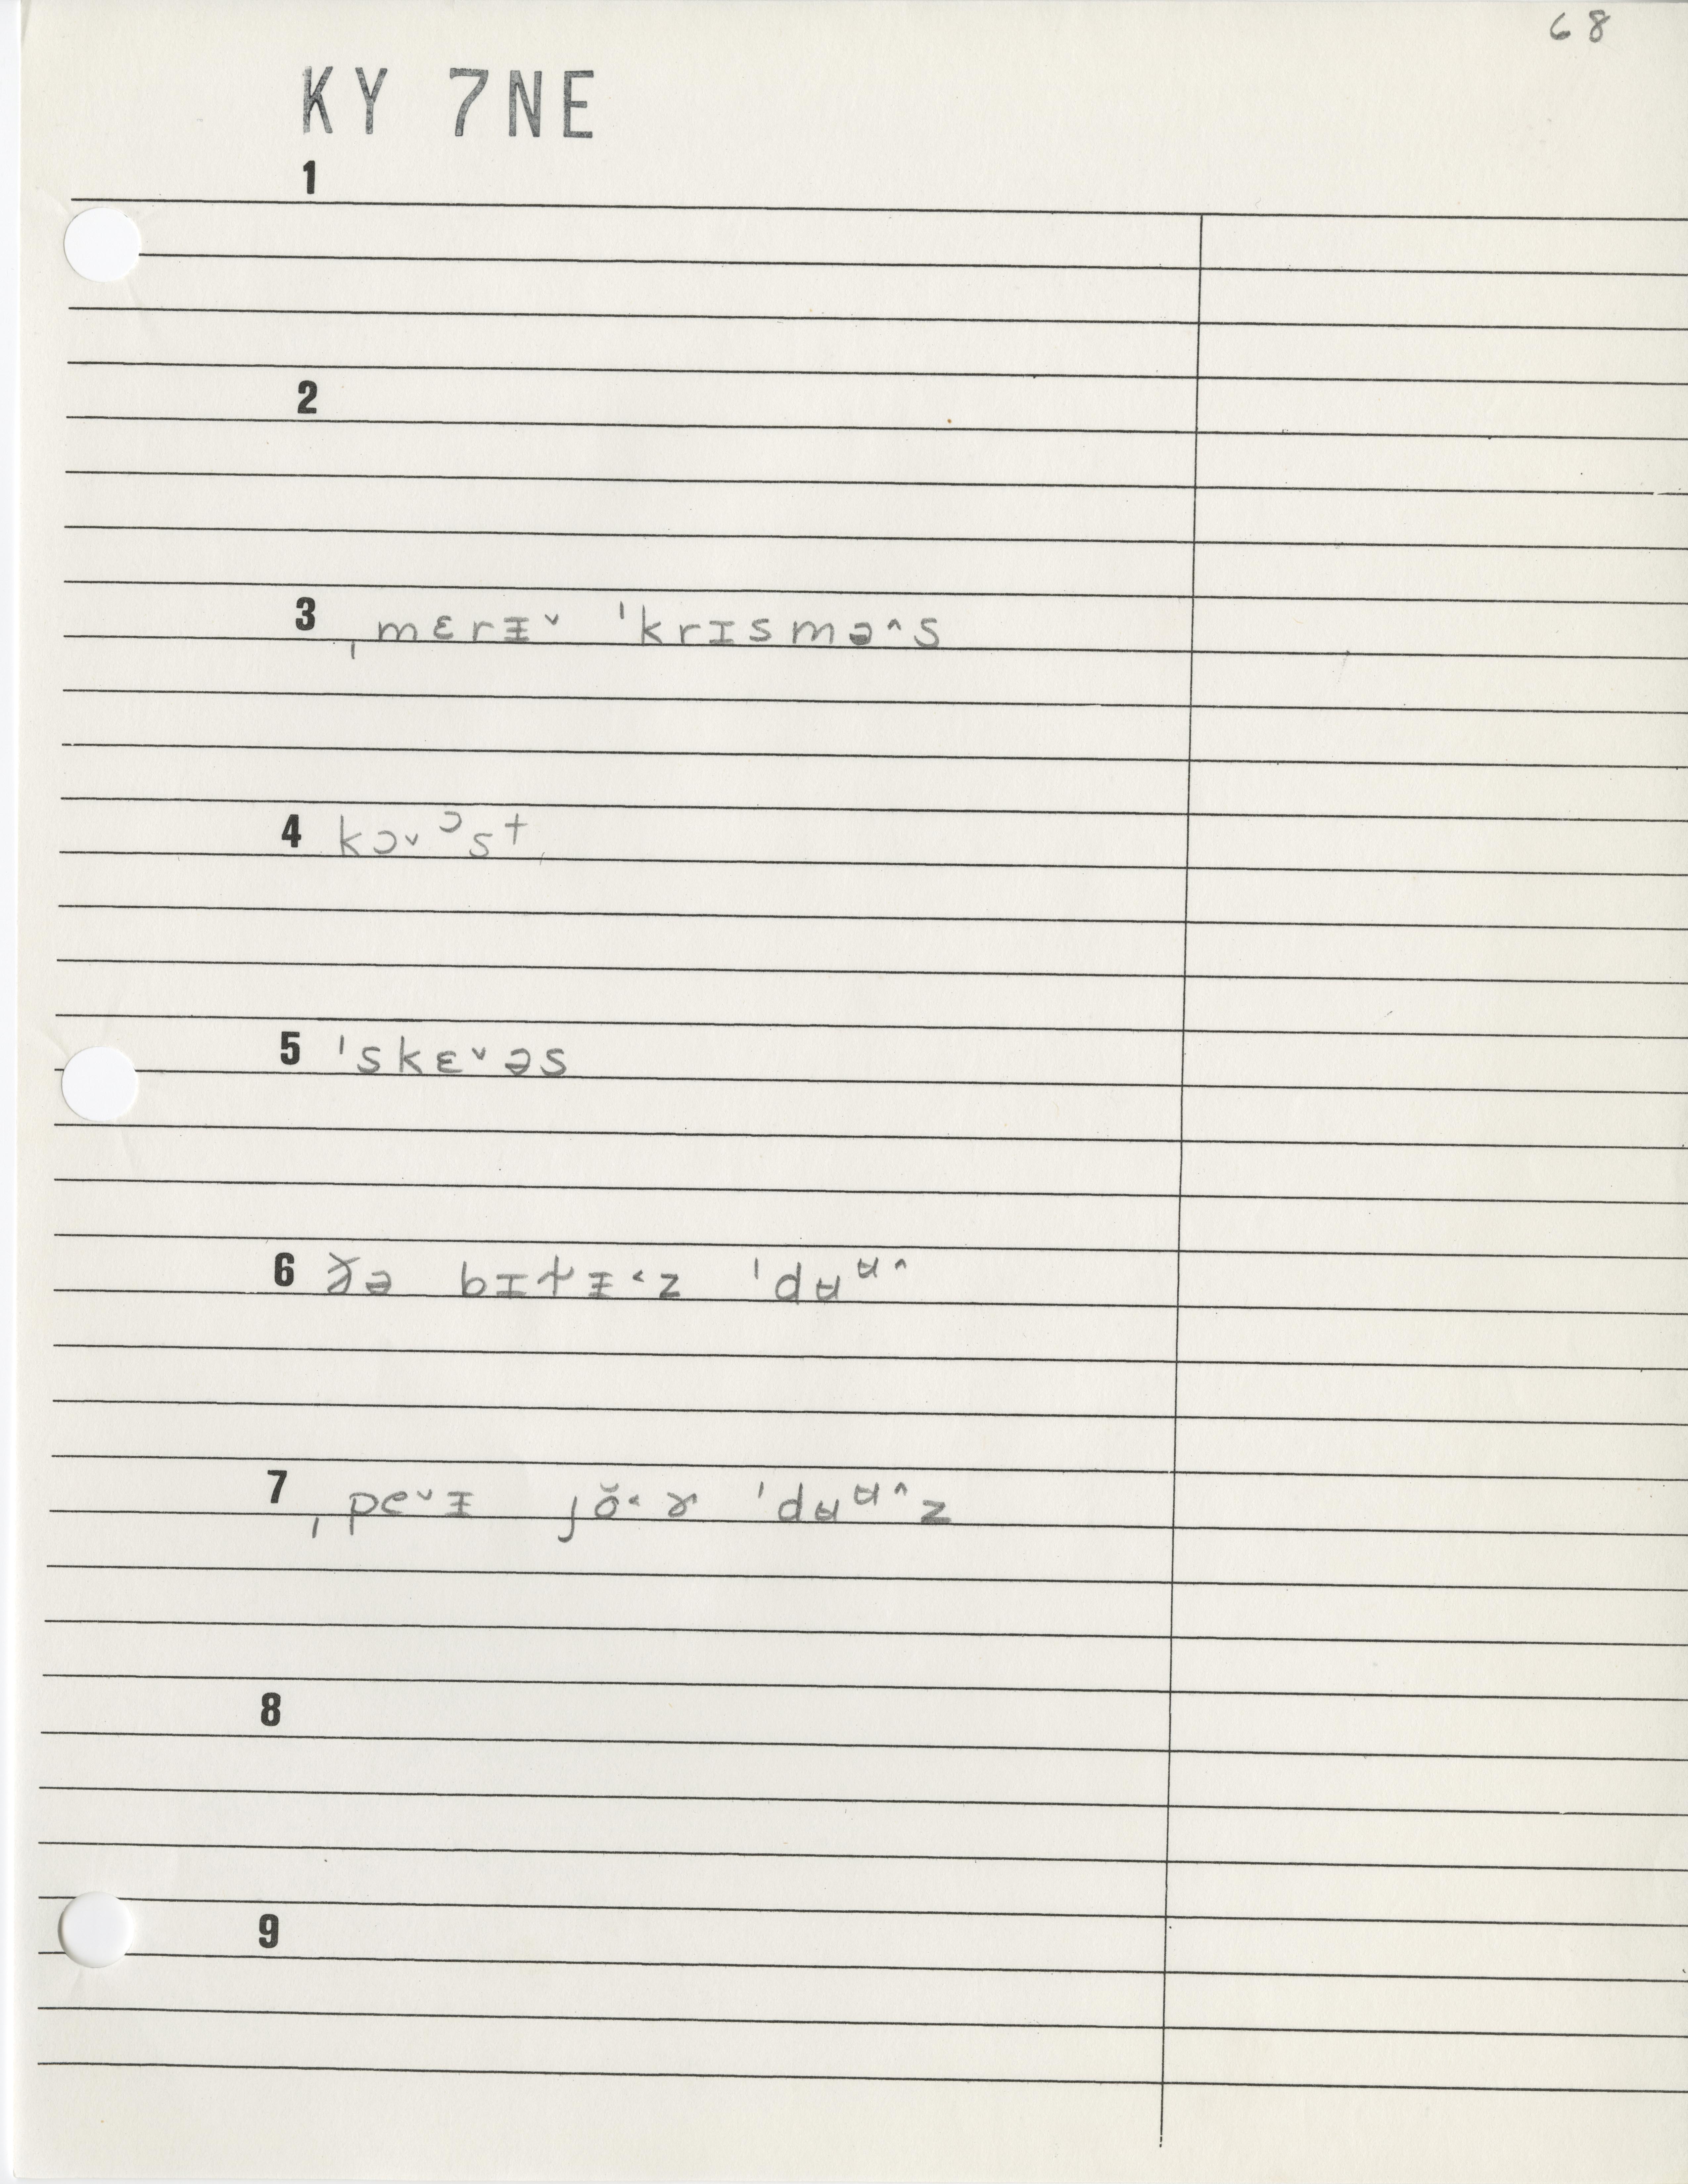 68
KY 7NE
1
2
3 ˌmɛrᵻ˅ ˈkrɪsmə˄s
4 kɔ˅ᵓst
5 ˈskɛ˅əs
6 ðə bɪt̬ᵻ˂z ˈdʉᶶ˄
7 ˌpe˅ᵻ jŏ˂ɚ ˈdʉᶶ˄z
8
9